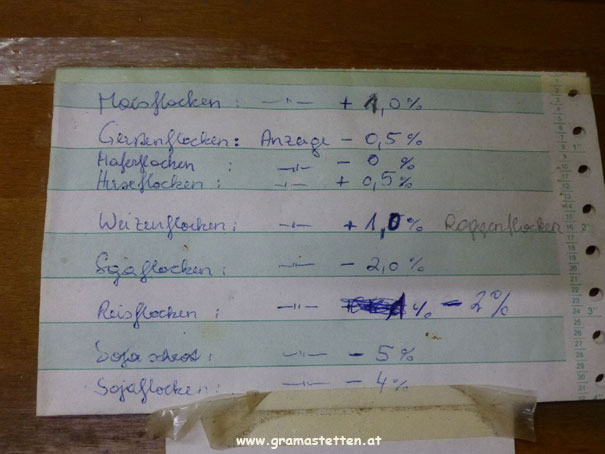 Maisflocken: —"— + 1,0 %
Gerstenflocken: Anzeige - 0,5 %
Haferflocken : —"— - 0 %
Hirseflocken: —"— + 0,5 %
Weizenflocken: —"— + 1,0 % Roggenflocken
Sojaflocken: —"— - 2,0 %
Reisflocken: —"— % - 2 %
Soja schrot: —"— - 5 %
Sojaflocken: —"— - 4 %
www.gramastetten.at